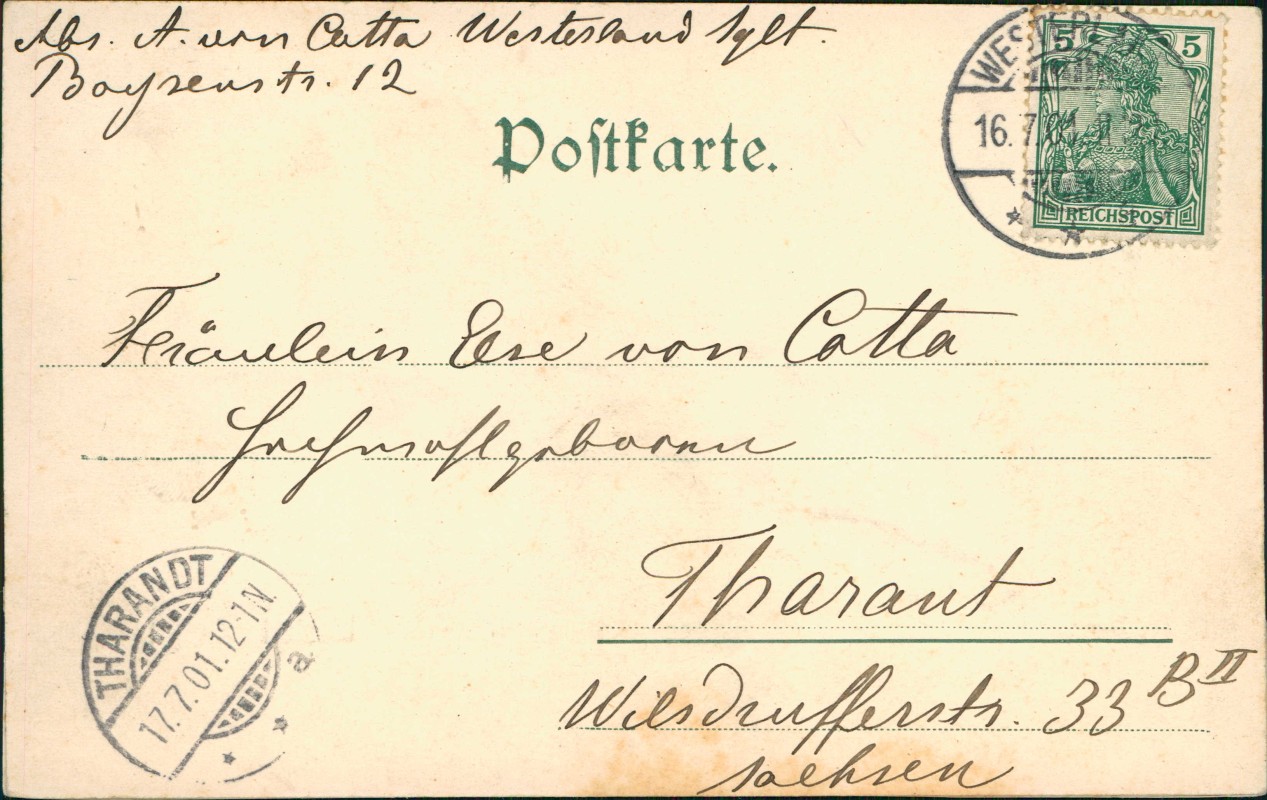 Abs. A. von Cotta Westerland Sylt.
Boysenstr. 12
Postkarte.
WESTERLAND
16.7.01.
5 5
REICHSPOST
Fräulein Else von Cotta
Hochwohlgeboren
Tharant
Wilsdrufferstr. 33 B II
Sachsen
THARANDT
17.7.01.12-1N.
a